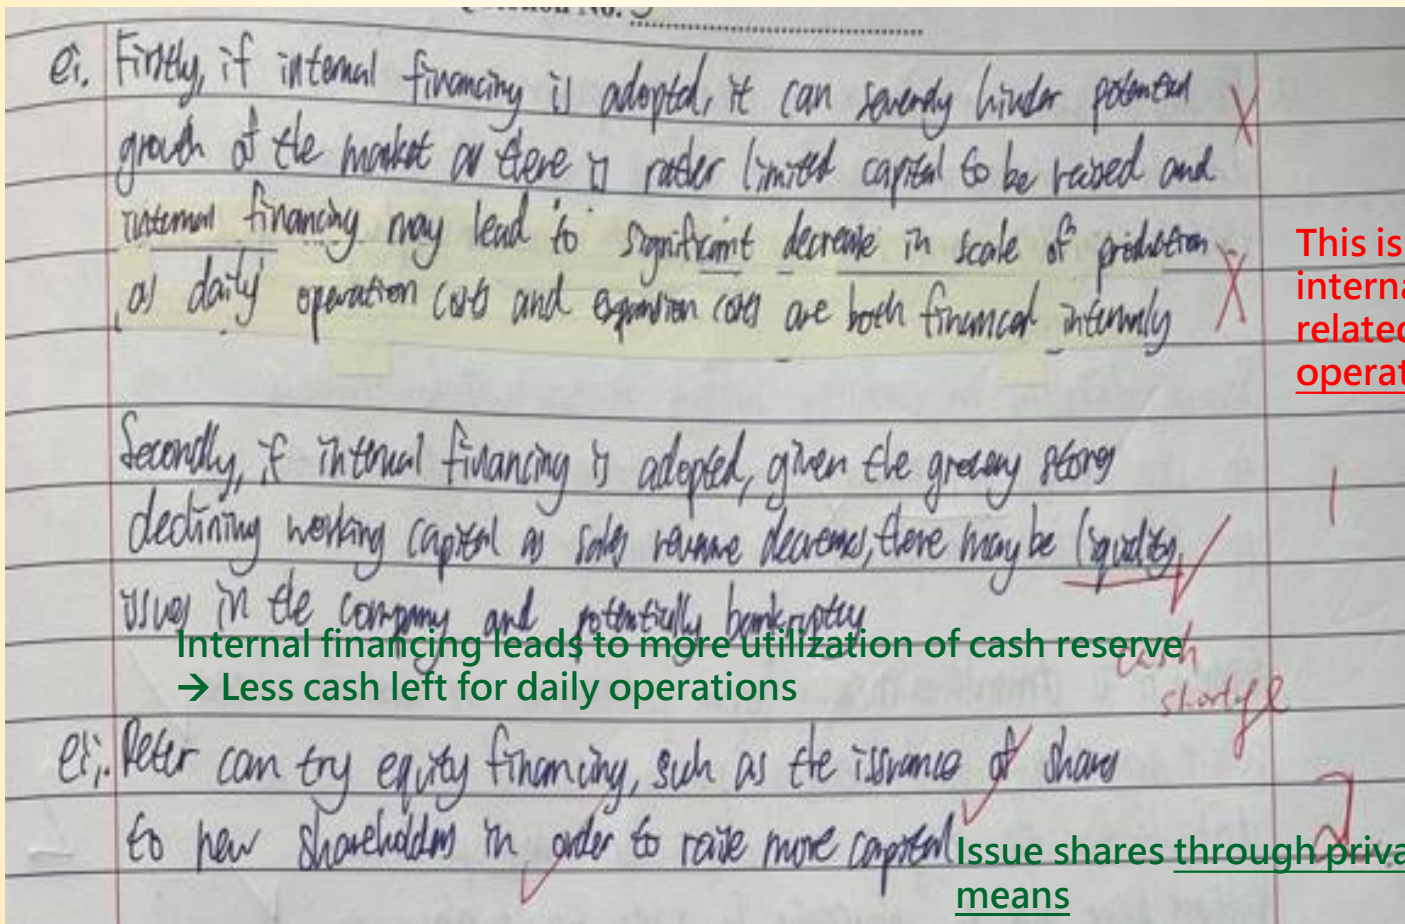 Question No. 3
ei. Firstly, if internal financing is adopted, it can severely hinder potential
growth of the market as there is rather limited capital to be raised and
internal financing may lead to significant decrease in scale of production
as daily operation costs and expansion costs are both financed internally
This is
interna
related
operat
Secondly, if internal financing is adopted, given the grocery stores
declining working capital as sales revenue decreases, there may be liquidity
1
issues in the company and potentially bankruptcy
Internal financing leads to more utilization of cash reserve
cash
→ Less cash left for daily operations
shortage
eii. Peter can try equity financing, such as the issuance of shares
to new shareholders in order to raise more capital
2
Issue shares through priva
means